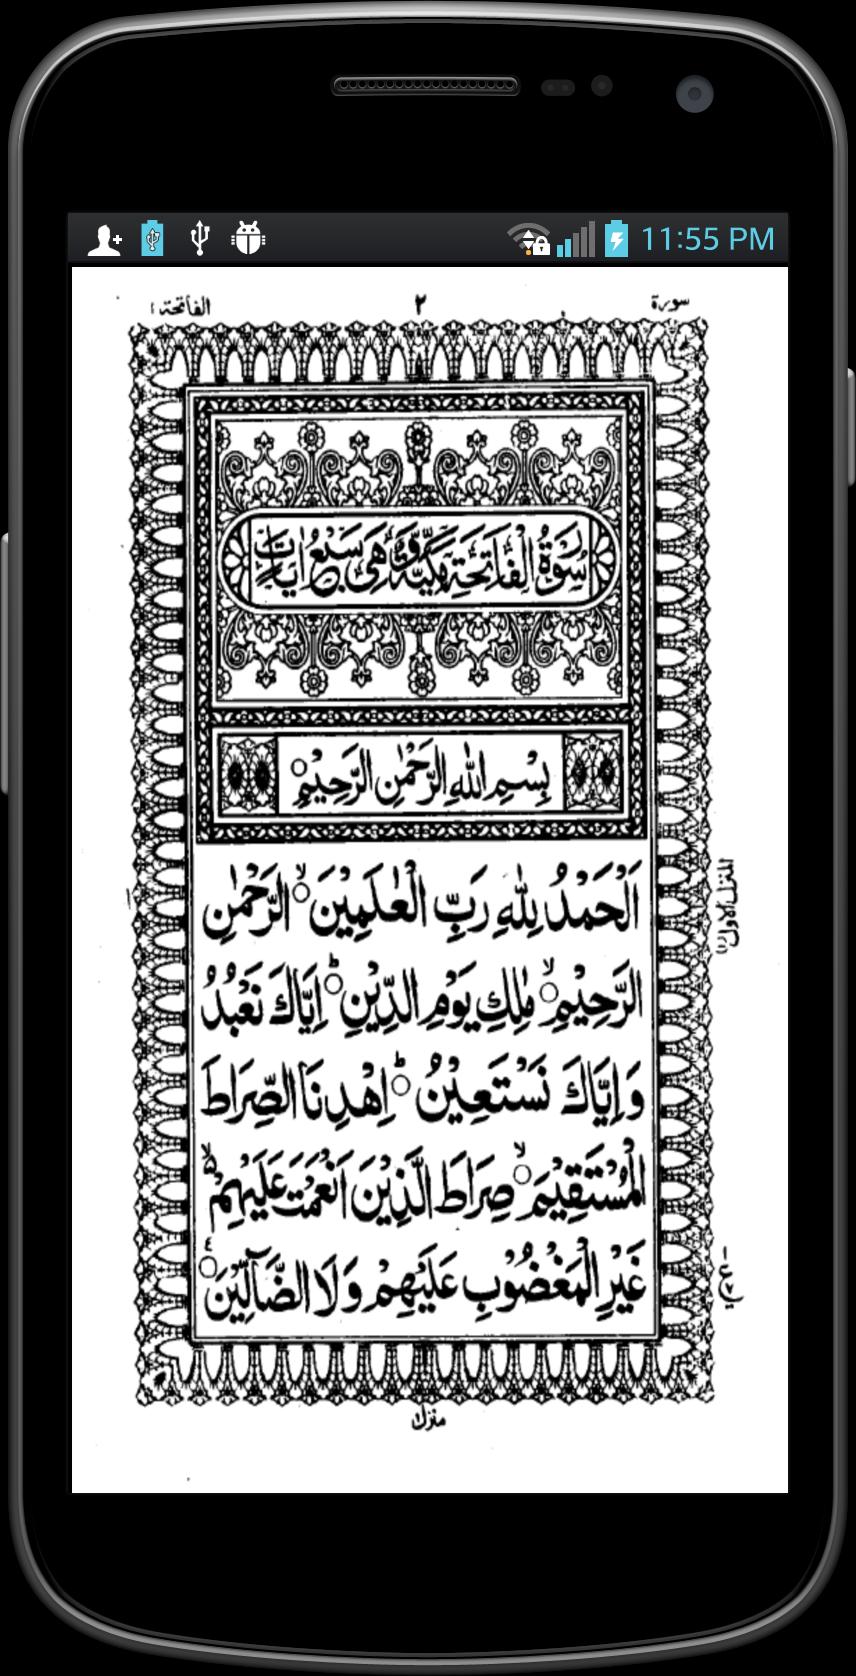 11:55 PM
سورة ٢ الفاتحة ١
سُوْرَةُ الْفَاتِحَةِ مَكِّيَّةٌ وَّهِىَ سَبْعُ اٰيَاتٍ
بِسْمِ اللّٰهِ الرَّحْمٰنِ الرَّحِيْمِ○
اَلْحَمْدُ لِلّٰهِ رَبِّ الْعٰلَمِيْنَ○ۙ الرَّحْمٰنِ
الرَّحِيْمِ○ۙ مٰلِكِ يَوْمِ الدِّيْنِ○ؕ اِيَّاكَ نَعْبُدُ
وَاِيَّاكَ نَسْتَعِيْنُ○ؕ اِهْدِنَا الصِّرَاطَ
الْمُسْتَقِيْمَ○ۙ صِرَاطَ الَّذِيْنَ اَنْعَمْتَ عَلَيْهِمْ ۙ۬
غَيْرِ الْمَغْضُوْبِ عَلَيْهِمْ وَلَا الضَّآلِّيْنَ○
المنزل الاول
منزل